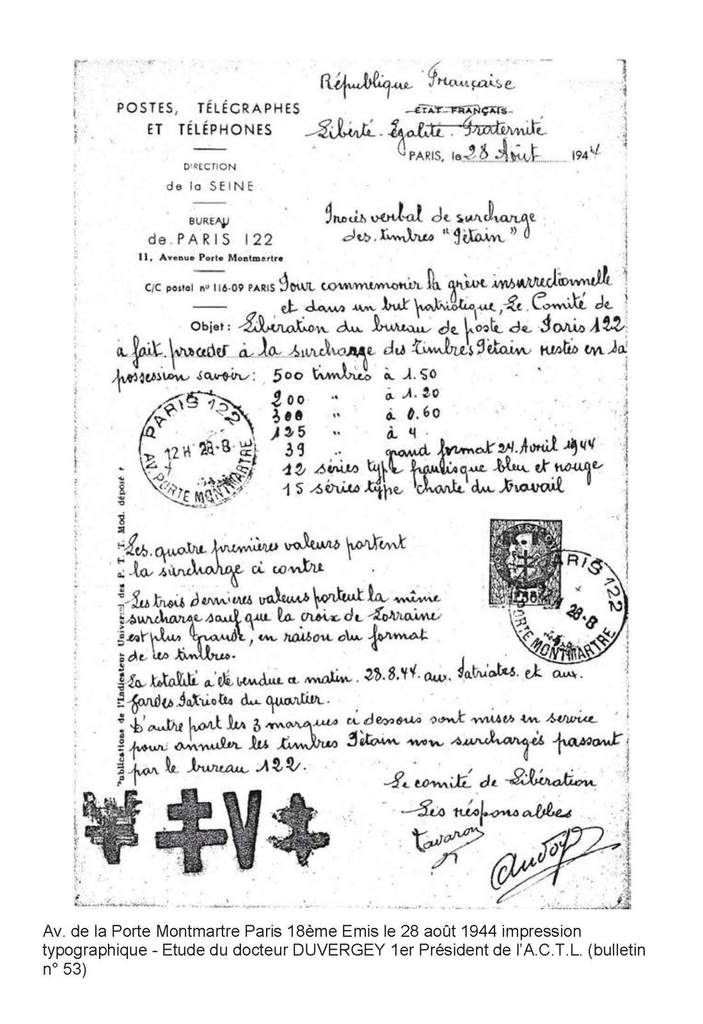 République Française
POSTES, TÉLÉGRAPHES
ET TÉLÉPHONES
ÉTAT FRANÇAIS
Liberté. Egalité. Fraternité
PARIS, le 28 Août 1944
DIRECTION
de la SEINE
BUREAU
de PARIS 122
11, Avenue Porte Montmartre
Procès verbal de surcharge
des timbres "Pétain"
C/C postal n° 116-09 PARIS
Pour commemorer la grève insurrectionnelle
et dans un but patriotique, Le Comité de
Objet: Libération du bureau de poste de Paris 122
a fait proceder à la surcharge des timbres Pétain restés en sa
possession savoir: 500 timbres à 1.50
200 " à 1.20
300 " à 0.60
125 " à 4.
39 grand format 24 Avril 1944
12 séries type francisque bleu et rouge
15 séries type charte du travail
PARIS 122
12H 28-8
AV. PORTE MONTMARTRE
Les quatre premières valeurs portent
la surcharge ci contre
PARIS 122
28-8
PORTE MONTMARTRE
Les trois dernieres valeurs portent la même
surcharge sauf que la croix de Lorraine
est plus grande, en raison du format
de ces timbres.
La totalité a été vendue ce matin. 28.8.44. aux Patriotes. et aux
gardes Patriotes du quartier.
D'autre part les 3 marques ci dessous sont mises en service
pour annuler les timbres Pétain non surchargés passant
par le bureau 122.
Publications de l'Indicateur Universel des P. T. T. Mod. déposé
Le comité de Libération
Les résponsables
Tavaron
V
Av. de la Porte Montmartre Paris 18ème Emis le 28 août 1944 impression
typographique - Etude du docteur DUVERGEY 1er Président de l'A.C.T.L. (bulletin
n° 53)